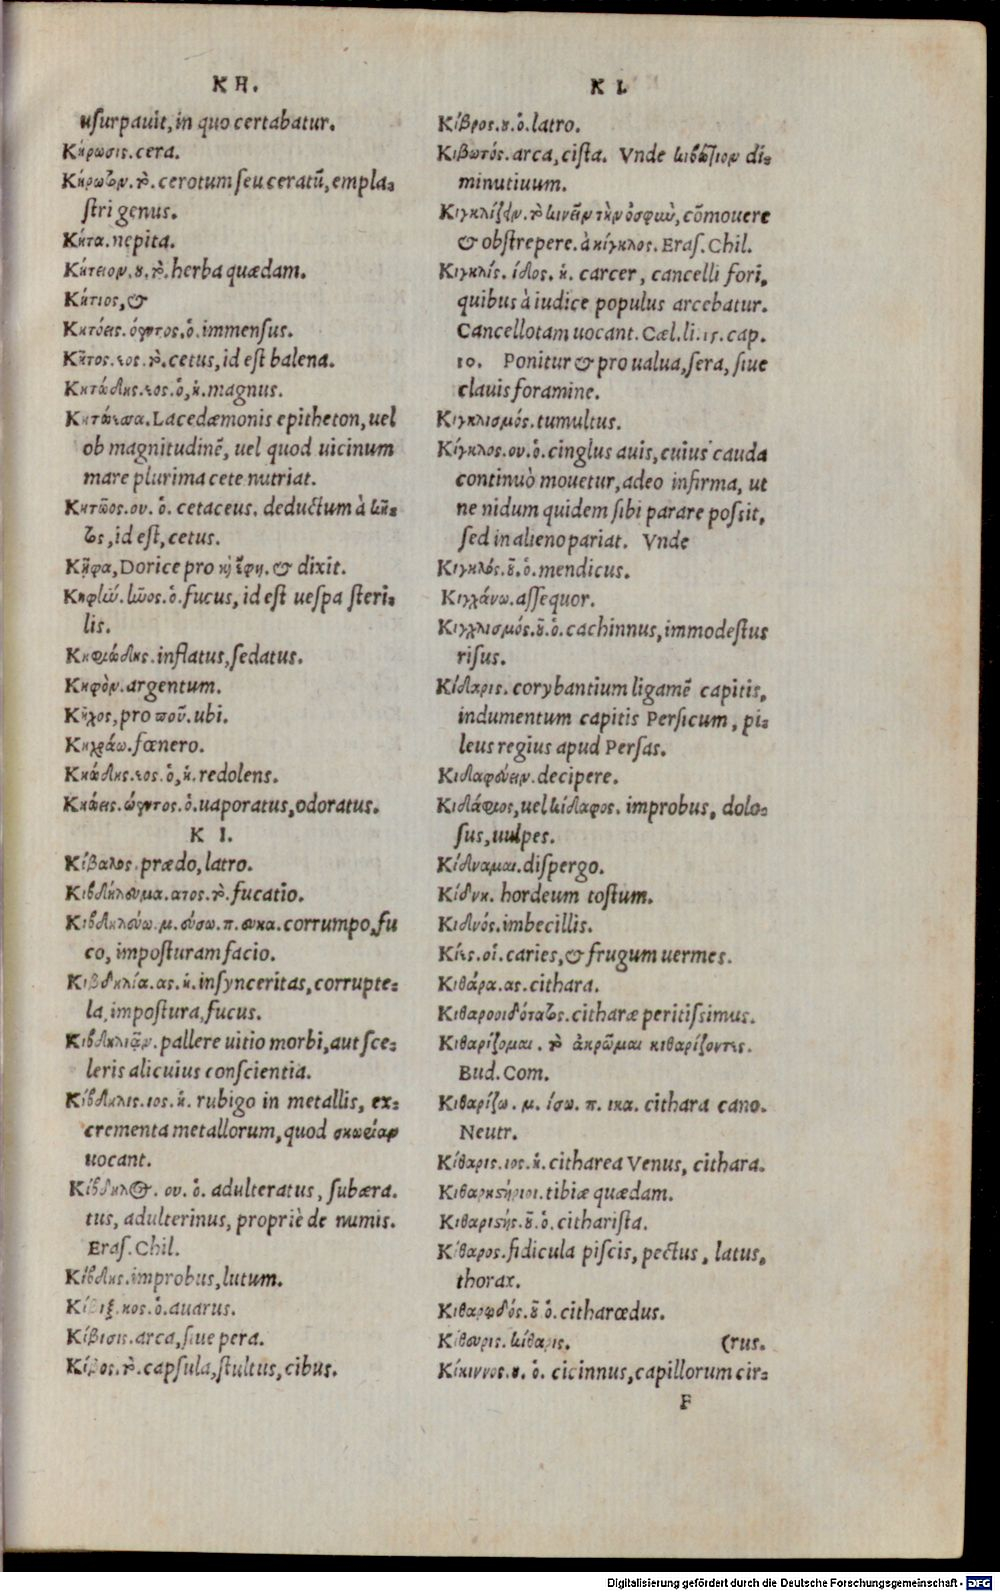 ΚΗ.
usurpauit, in quo certabatur.
Κήρωσις. cera.
Κήρωτον. τὸ. cerotum seu ceratũ, empla-
stri genus.
Κήτα. nepita.
Κήτειον. ȣ. τὸ. herba quædam.
Κήτιος, &
Κητόεις. όεντος. ὁ. immensus.
Κῆτος. εος. τὸ. cetus, id est balena.
Κητώδης. εος. ὁ, ἡ. magnus.
Κητώεσσα. Lacedæmonis epitheton, uel
ob magnitudinẽ, uel quod uicinum
mare plurima cete nutriat.
Κητῶος. ου. ὁ. cetaceus. deductum à κῆ-
τος, id est, cetus.
Κἤφα, Dorice pro καὶ ἔφη. & dixit.
Κηφὴν. ῆνος. ὁ. fucus, id est uespa steri-
lis.
inflatus, sedatus.
Κηφὸν. argentum.
Κῆχος, pro ποῦ. ubi.
Κιχράω. fœnero.
Κηώδης. εος. ὁ, ἡ. redolens.
Κηώεις. ώεντος. ὁ. uaporatus, odoratus.
Κ Ι.
Κίβαλος. prædo, latro.
Κιβδήλευμα. ατος. τὸ. fucatio.
Κιβδηλεύω. μ. εύσω. π. ευκα. corrumpo, fu
co, imposturam facio.
Κιβδηλία. ας. ἡ. insynceritas, corrupte-
la, impostura, fucus.
Κιβδηλιᾷν. pallere uitio morbi, aut sce-
leris alicuius conscientia.
Κίβδηλις. ιος. ἡ. rubigo in metallis, ex-
crementa metallorum, quod σκωρίαν
uocant.
Κίβδηλος. ου. ὁ. adulteratus, subæra-
tus, adulterinus, propriè de numis.
Eras. Chil.
Κίβδης. improbus, lutum.
κος. ὁ. auarus.
Κίβισις. arca, siue pera.
Κίβος. τὸ. capsula, stultus, cibus.
Κ Ι.
Κίβρος. ȣ. ὁ. latro.
Κιβωτός. arca, cista. Vnde κιβώτιον di-
minutiuum.
Κιγκλίζειν. τὸ κινεῖν τὴν ὀσφὺν, cõmouere
& obstrepere. à κίγκλος. Eras. Chil.
Κιγκλίς. ίδος. ἡ. carcer, cancelli fori,
quibus à iudice populus arcebatur.
Cancellotam uocant. Cæl. li. 15. cap.
10. Ponitur & pro ualua, sera, siue
clauis foramine.
Κιγκλισμός. tumultus.
Κίγκλος. ου. ὁ. cinglus auis, cuius cauda
continuò mouetur, adeo infirma, ut
ne nidum quidem sibi parare possit,
sed in alieno pariat. Vnde
Κιγκλός. ȣ͂. ὁ. mendicus.
Κιγχάνω. assequor.
Κιγχλισμός. ȣ͂. ὁ. cachinnus, immodestus
risus.
Κίδαρις. corybantium ligamẽ capitis,
indumentum capitis Persicum, pi-
leus regius apud Persas.
Κιδαφεύειν. decipere.
Κιδάφιος, uel κίδαφος. improbus, dolo-
sus, uulpes.
Κίδναμαι. dispergo.
Κίδνη. hordeum tostum.
Κιδνός. imbecillis.
Κίες. οἱ. caries, & frugum uermes.
Κιθάρα. ας. cithara.
Κιθαροιδότατος. citharæ peritissimus.
Κιθαρίζομαι. τὸ ἀκρῶμαι κιθαρίζοντες.
Bud. Com.
Κιθαρίζω. μ. ίσω. π. ικα. cithara cano.
Neutr.
Κίθαρις. ιος. ἡ. citharea Venus, cithara.
Κιθαρηστήριοι. tibiæ quædam.
Κιθαριστής. ȣ͂. ὁ. citharista.
Κίθαρος. fidicula piscis, pectus, latus,
thorax.
Κιθαρῳδός. ȣ͂ ὁ. citharœdus.
Κίθαυρις. κίθαρις. (rus.
Κίκιννος. ȣ. ὁ. cicinnus, capillorum cir-
F
Digitalisierung gefördert durch die Deutsche Forschungsgemeinschaft - DFG